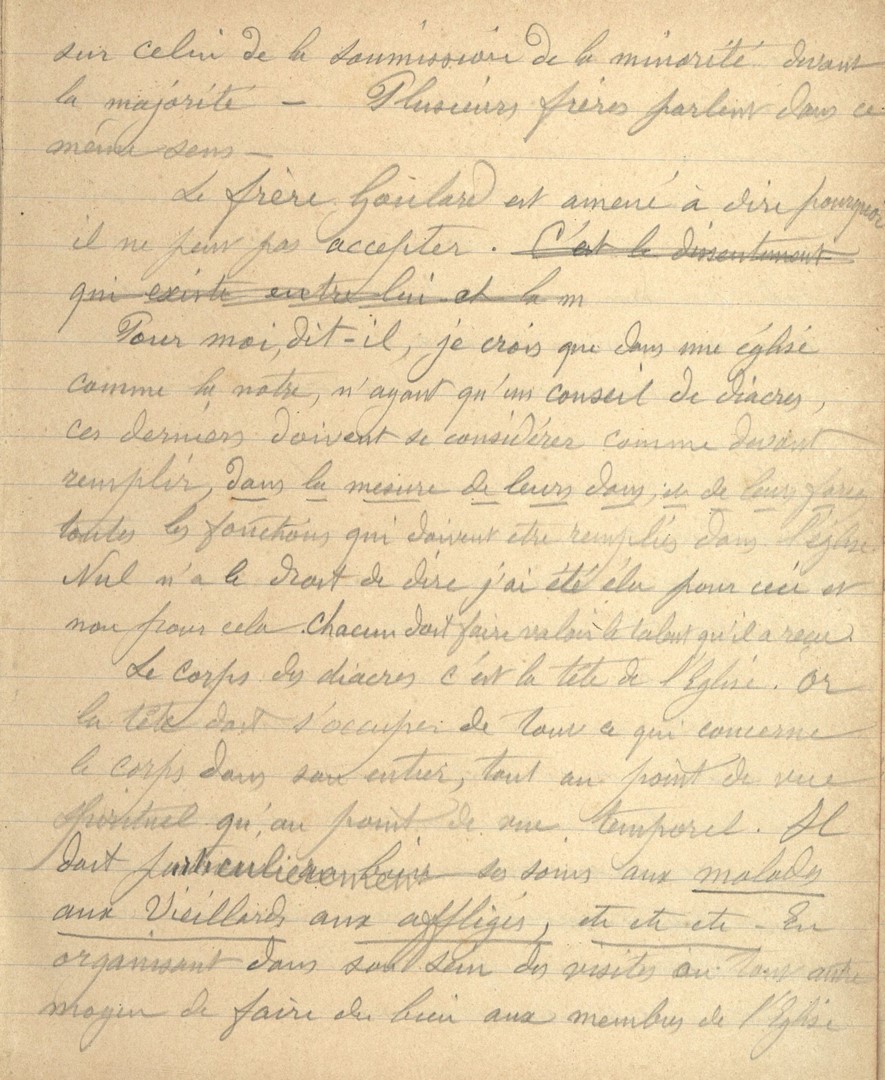 sur celui de la soumission de la minorité devant
la majorité - Plusieurs frères parlent dans ce
même sens -
Le frère Goulard est amené à dire pourquoi
il ne peut pas accepter. C'est le dissentiment
qui existe entre lui et la m
Pour moi, dit-il, je crois que dans une église
comme la notre, n'ayant qu'un conseil de diacres,
ces derniers doivent se considérer comme devant
remplir, dans la mesure de leurs dons, et de leurs forces
toutes les fonctions qui doivent etre remplies dans l'église
Nul n'a le droit de dire j'ai été élu pour ceci et
non pour cela. Chacun doit faire valoir le talent qu'il a reçu.
Le corps des diacres c'est la tête de l'Eglise. Or
la tête doit s'occuper de tout ce qui concerne
le corps dans son entier, tant au point de vue
spirituel qu'au point de vue temporel. Il
doit particulièrement ses soins aux malades
aux Vieillards aux affligés, etc etc etc - En
organisant dans son sein des visites ou tous autre
moyen de faire du bien aux membres de l'Eglise